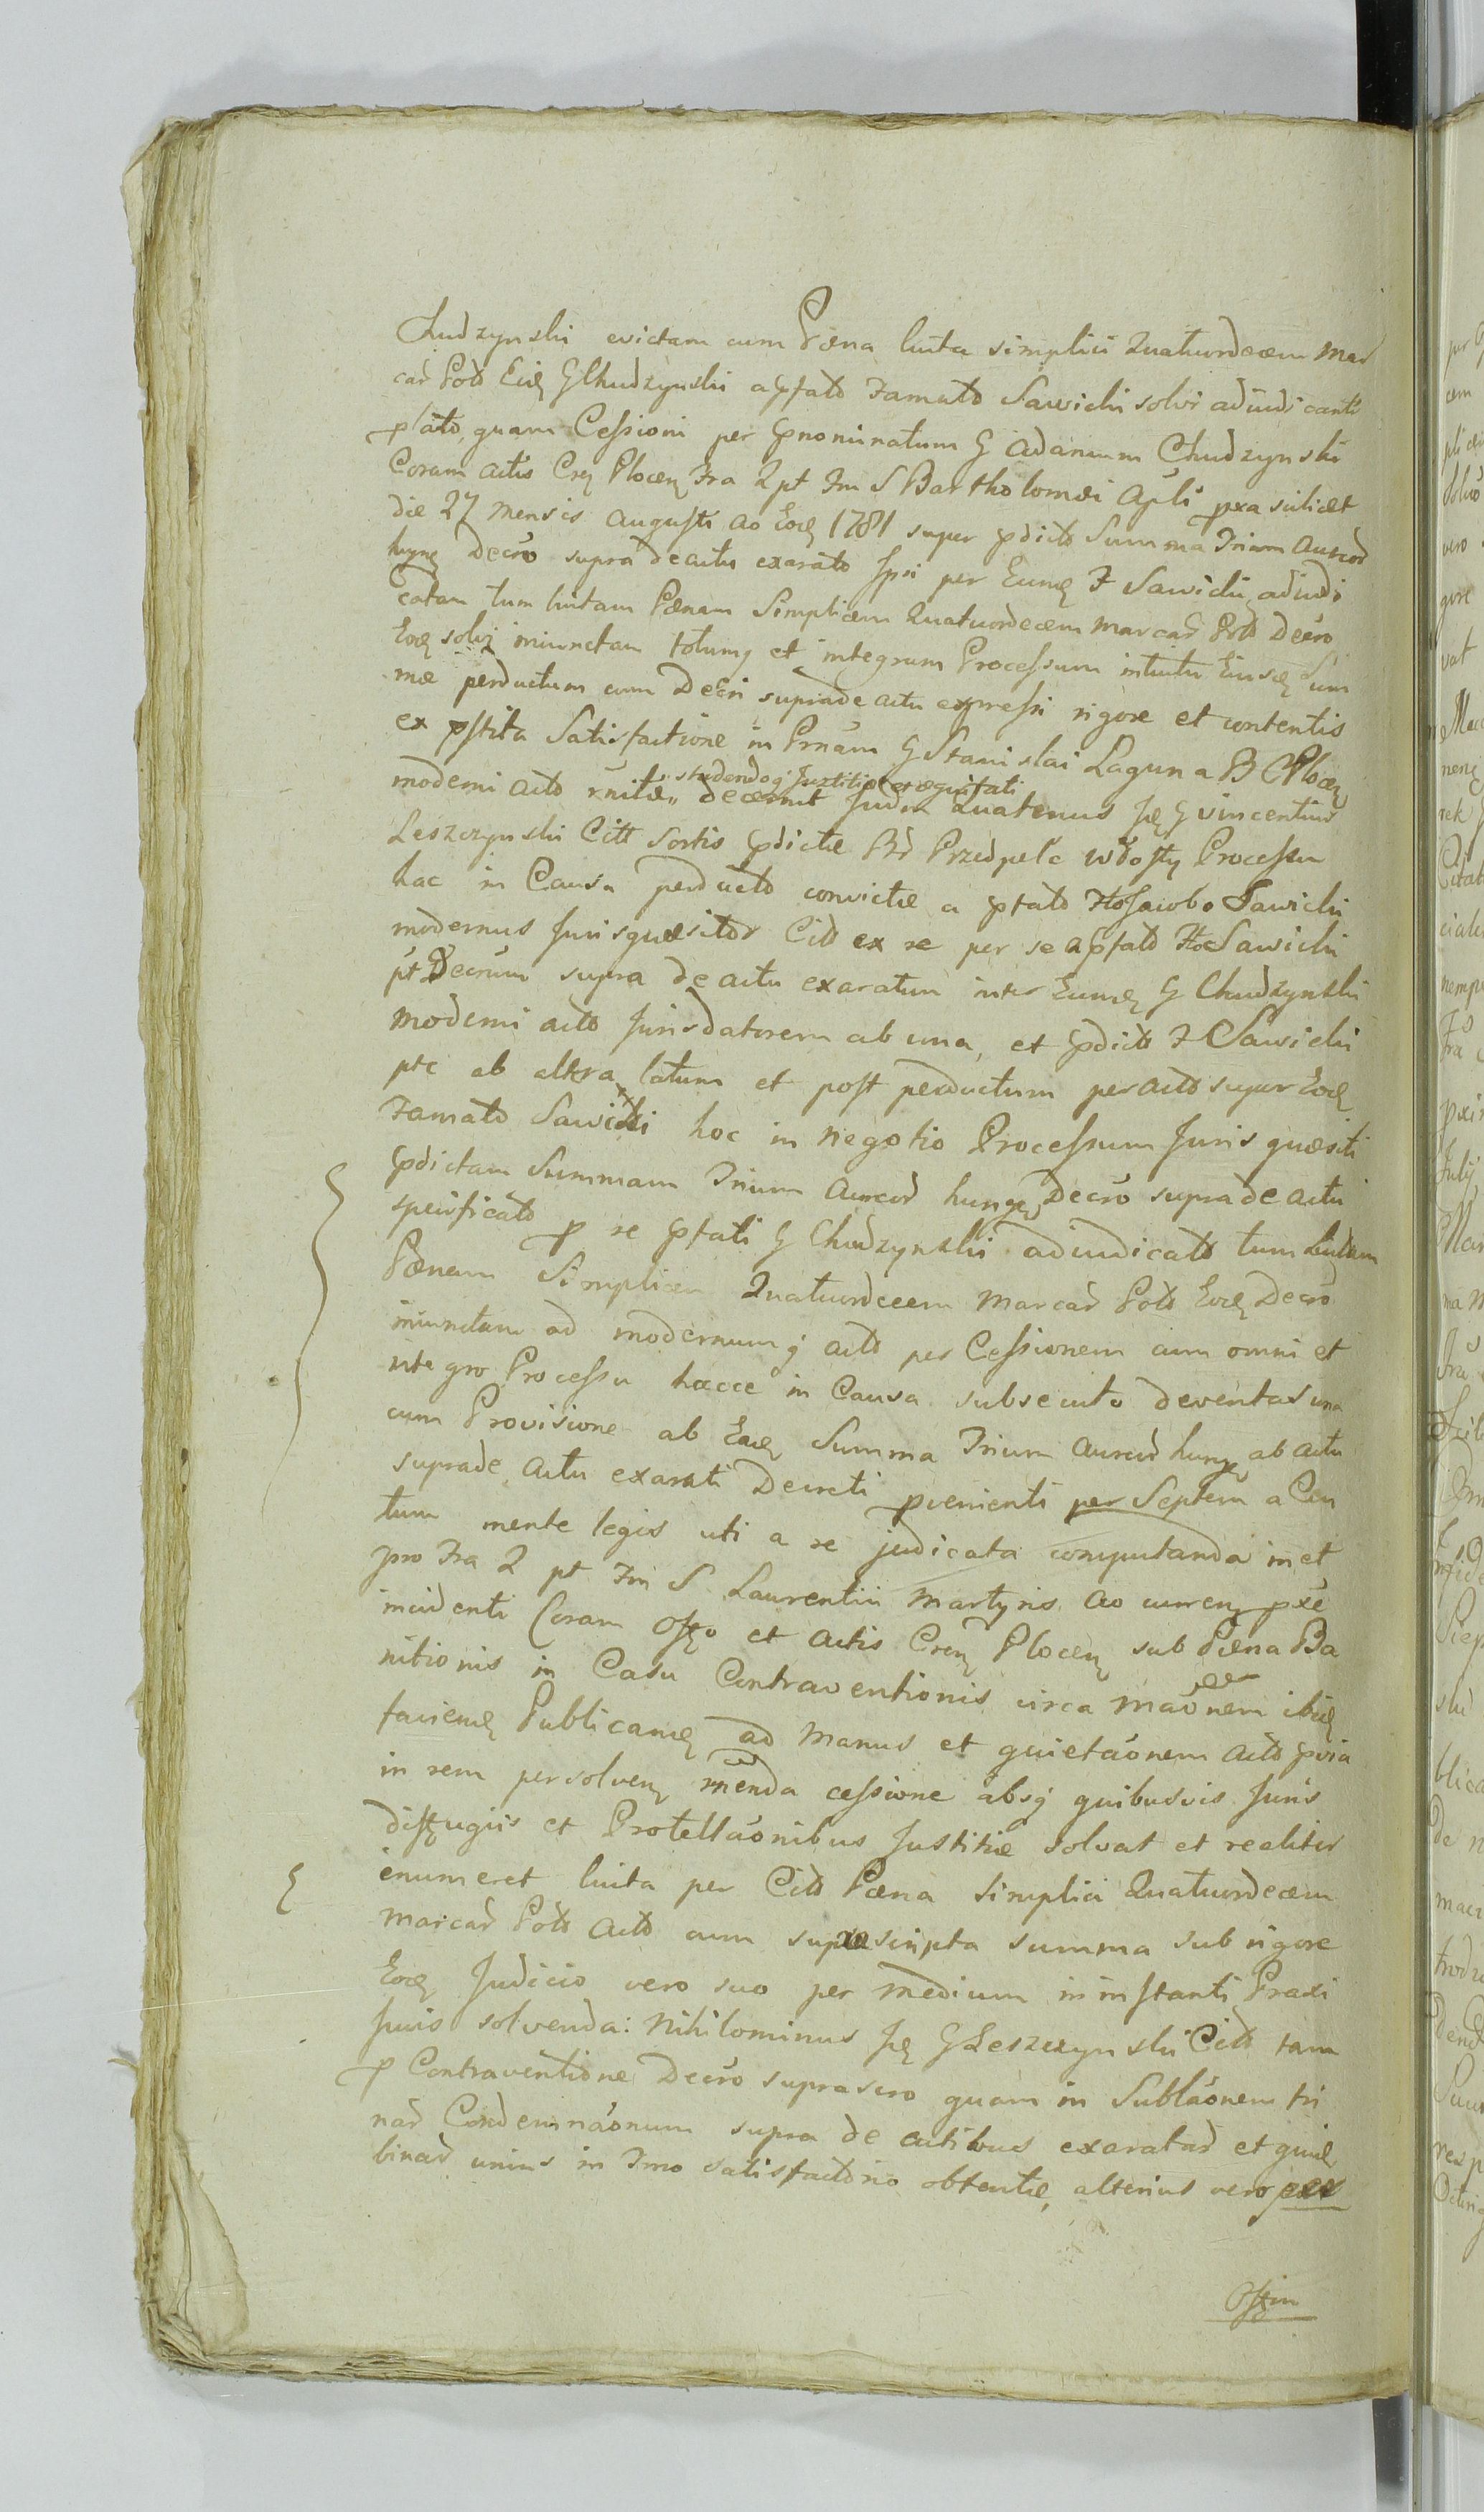 Chudzynski evictam cum Pœna luita simplici Quatuordecem Mar
car Polo Eid G Chudzynski a pfato Famato Sawicki solvi adiudicanti
plato, quam Cessioni per pnominatum G Adamum Chudzynski
Coram actis Cren Plocen Fra 2 pt Fm S Bartholomæi Apli pxa scilicet
die 27 Mensis Augusti ao Eod 1781 super pdicto Summa Trium Aureor
hunge Decro supra de actu exarato Ipsi per Eund F Sawicki adiudi
catam tum luitam Pœnam Simplicem Quatuordecem Marcar Polo Decro
Eod solvi iniunctam totumq et integrum Processum intuitu Eiusd Sum
mæ perductum cum Decri supra de actu expressi rigore et contentis
ex pstita Satisfactione in Prnam G Stanislai Laguna B C Plocen
studendoq Justitiæ et æquitati
moderni acto decernit Judm Quatenus G Vincentius
Leszczynski Citt Sortis pdictæ Br Przedpelc Włosty Processu
hac in Causa perducto convictæ a pfato Fto Jacobo Sawicki
modernus Jurisquæsitor Cito ex re per se a pfato Fto Sawicki
pt Decrum supra de actu exaratum inter Eund G Chudzynski
moderni acto Jurisdatorem ab una, et pdicto F Sawicki
pte ab altera latum et post perductum per acto super Eod
Famato Sawicki hoc in negotio Processum Juris quæsiti
pdictam Summam Trium Aureor hunge Decro supra de actu
specificato p se pfati G Chudzynski adiudicato tum luitam
Pœnam Simplicem Quatuordecem Marcar Polo Eod Decro
iniunctam ad modernum q acto per Cessionem cum omni et
integro Processu hocce in Causa subsecuto deventas una
cum Provisione ab Ead Summa Trium Aureor hunge ab actu
supra de actu exarati Decreti pvenienti per Septem a Cen
tum mente legis uti a re judicata computanda in et
pro Fra 2 pt Fm S Laurentii Martyris ao curren pxe
incidenti Coram Offo et Actis Cren Plocen sub Pœna Ba
nitionis in Casu Contraventionis circa Maonem ibid
faciend Publicand ad Manus et quietaonem acto pvia
in rem persolven menda cessione absq quibusvis Juris
diffugiis et Protellaonibus Justitiæ solvat et realiter
enumeret luita per Cito Pœna simplici Quatuordecem
Marcar Polo acto cum suprascripta summa sub rigore
Eod Judicio vero suo per medium in instanti Praxi
Juris solvenda: Nihilominus G Leszczynski Cito tam
p Contraventione Decro suprasero quam in Sublaonem tri
nar Condemnaonum supra de actibus exaratar et quid
binar unius in Fmo satisfactorio obtentæ, alterius vero per
Offm